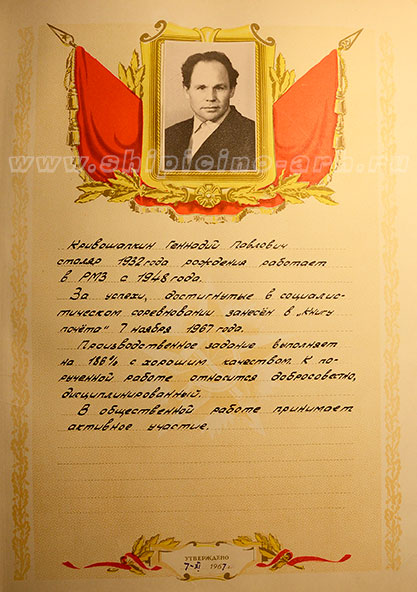 www.shipicino-arh.ru
Кривошапкин Геннадий Павлович
столяр 1932 года рождения работает
в РМЗ с 1948 года.
За успехи, достигнутые в социалис-
тическом соревновании занесён в „Книгу
почёта" 7 ноября 1967 года.
Производственное задание выполняет
на 136% с хорошим качеством. К по-
рученной работе относится добросовестно,
дисциплинированный.
В общественной работе принимает
активное участие.
УТВЕРЖДЕНО
7-XI 1967 г.